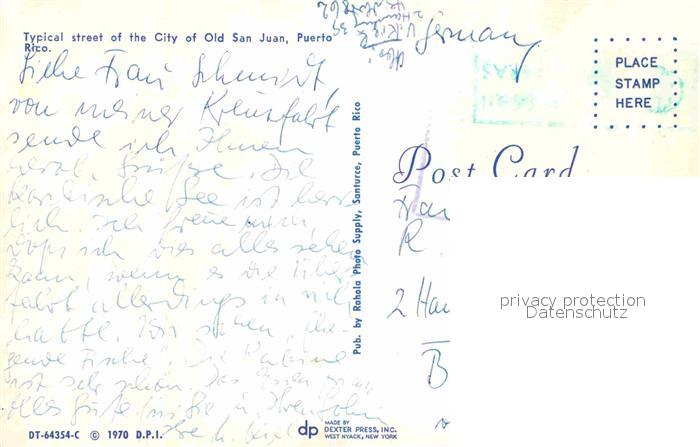 Typical street of the City of Old San Juan, Puerto
Rico.
Germany
PLACE
STAMP
HERE
Liebe Frau Schmidt,
von meiner Kreuzfahrt
sende ich Ihnen
herzl. Grüße. Die
Karibische See ist herr-
lich. Ich freue mich,
daß ich dies alles sehen
kann, wenn es die Über-
fahrt allerdings in sich
hatte. Wir sahen "flie-
gende Fische". Die Kabine
ist sehr schön. Das Essen
alles Gute für Sie u. Ihren Sohn
Ihre
Pub. by Rahola Photo Supply, Santurce, Puerto Rico
Post Card
2 Ham
B
privacy protection
Datenschutz
DT-64354-C © 1970 D.P.I.
dp MADE BY
DEXTER PRESS, INC.
WEST NYACK, NEW YORK